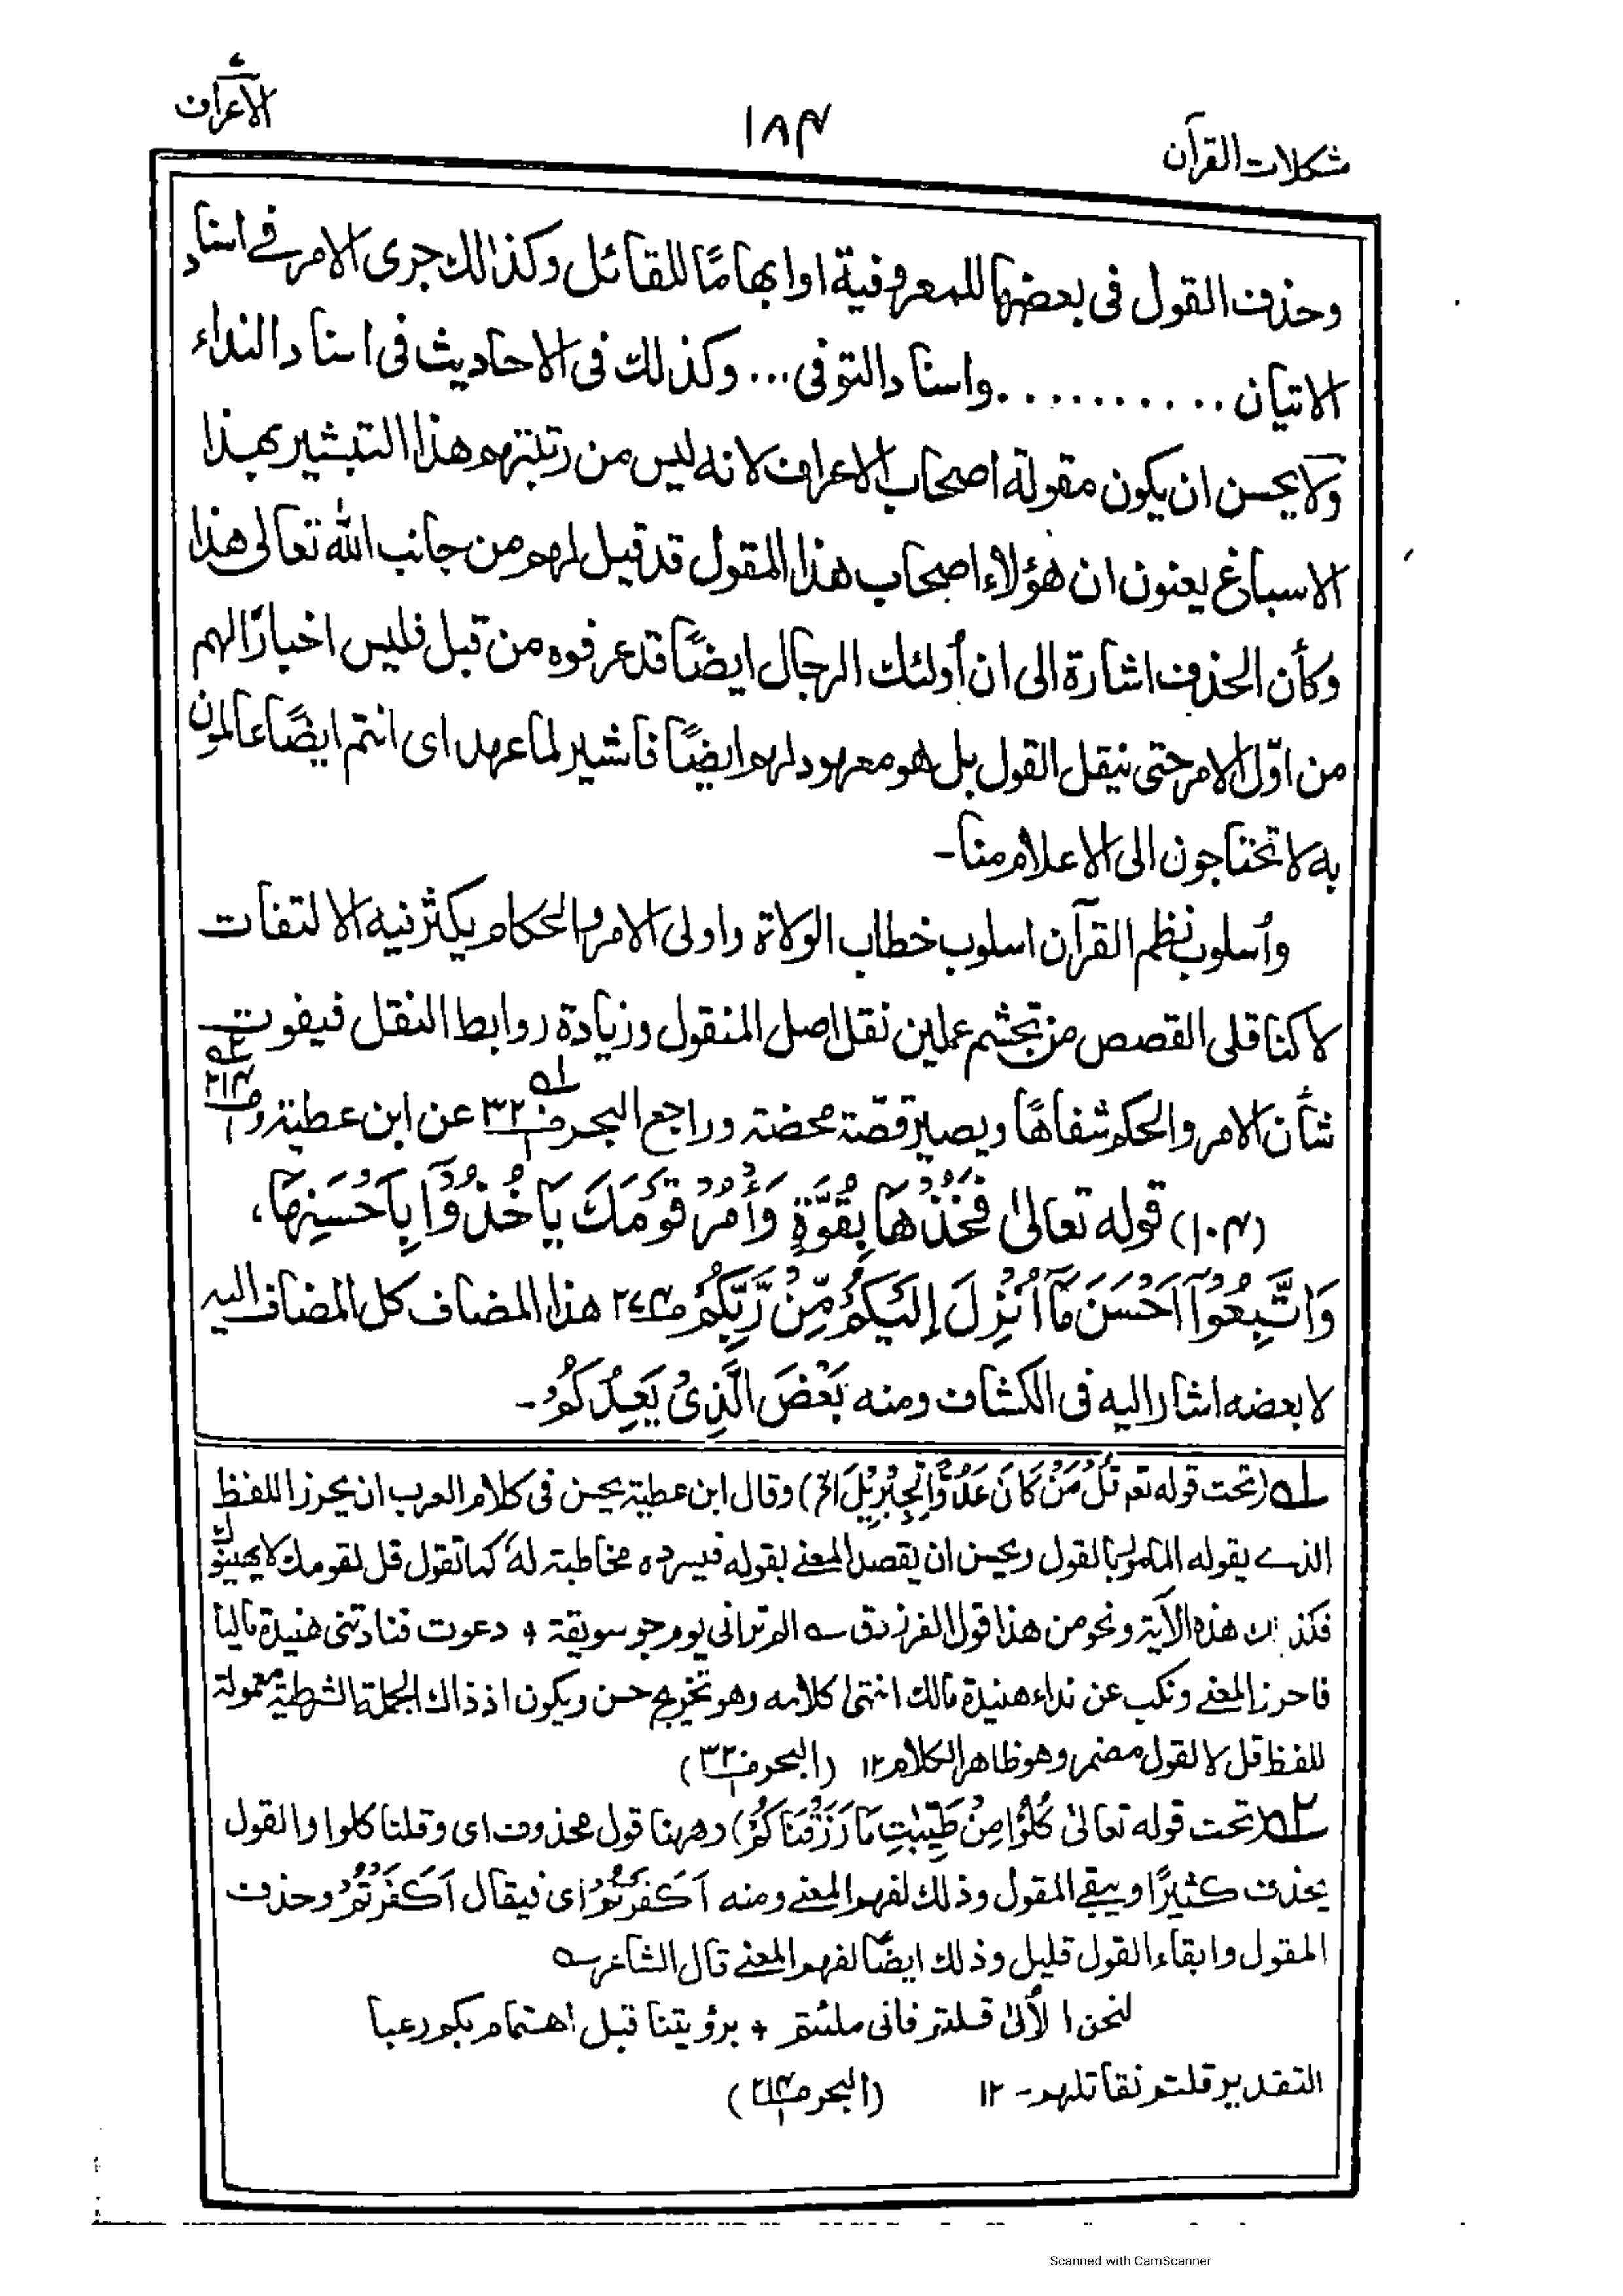 مشكلات القرآن
١٨٤
الاعراف
وحذف القول فى بعضها للمعروفية او ابهامًا للقائل وكذالك جرى الامر فے اسناد
الاتيان . . . . . . . . . . واسناد التوفى ... وكذلك فى الاحاديث فى اسناد النداء
ولا يحسن ان يكون مقولة اصحاب الاعراف لانه ليس من رتبتهم هذا التبشير بهذا
الاسباغ يعنون ان هؤلاء اصحاب هذا المقول قد قيل لهم من جانب الله تعالى هذا
وكأن الحذف اشارة الى ان أولئك الرجال ايضًا قد عرفوه من قبل فليس اخبارًا لهم
من اوّل الامر حتى ينقل القول بل هو معهود لهم ايضًا فاشير لما عهد اى انتم ايضًا عالمون
به لا تحتاجون الى الاعلام منا -
وأسلوب نظم القرآن اسلوب خطاب الولاة واولى الامر والحكام يكثر فيه الالتفات
لا كناقلى القصص من تجشم عملين نقل اصل المنقول وزيادة روابط النقل فيفوت
شأن الامر والحكم شفاهًا ويصير قصّة محضة وراجع البحر ص٣٢٠/١ له عن ابن عطية و ص٢١٤/١ ٢ه
(١٠٤) قوله تعالىٰ فَخُذْهَا بِقُوَّةٍ وَأْمُرْ قَوْمَكَ يَأْخُذُوْا بِاَحْسَنِهَا،
وَاتَّبِعُوْٓا اَحْسَنَ مَآ اُنْزِلَ اِلَيْكُمْ مِّنْ رَّبِّكُمْ ص٢٧٤ هذا المضاف كل المضاف اليه
لا بعضه اشار اليه فى الكشاف ومنه بَعْضَ الَّذِىْ يَعِدُكُمْ -
له (تحت قوله تعم قُلْ مَنْ كَانَ عَدُوًّا لِّجِبْرِيْلَ الخ) وقال ابن عطية يحسن فى كلام العرب ان يحرز اللفظ
الذے يقوله المامور بالقول ويحسن ان يقصد المعنے بقوله فيسرده مخاطبة له كما تقول قل لقومك لا يهينوك
فكذلك هذه الآية ونحو من هذا قول الفرزدق ؎ الم ترانى يوم جو سويقة + دعوت فنادتنى هنيدة ماليا
فاحرز المعنے ونكب عن نداء هنيدة مالك انتهى كلامه وهو تخريج حسن ويكون اذ ذاك الجملة الشرطية معمولة
للفظ قل لا لقول مضمر وهو ظاهر الكلام ١٢ (البحر ص٣٢٠/١)
٢ه (تحت قوله تعالىٰ كُلُوْا مِنْ طَيِّبٰتِ مَا رَزَقْنَاكُمْ) وههنا قول محذوف اى وقلنا كلوا والقول
يحذف كثيرًا ويبقے المقول وذلك لفهم المعنے ومنه اَكَفَرْتُمْ اى فيقال اَكَفَرْتُمْ وحذف
المقول وابقاء القول قليل وذلك ايضًا لفهم المعنے قال الشاعر ؎
لنحن الأُلىٰ قلتم فانى ملئتم + برؤيتنا قبل اهتمام بكم رعبا
التقدير قلتم نقاتلهم - ١٢ (البحر ص٢١٤/١)
Scanned with CamScanner